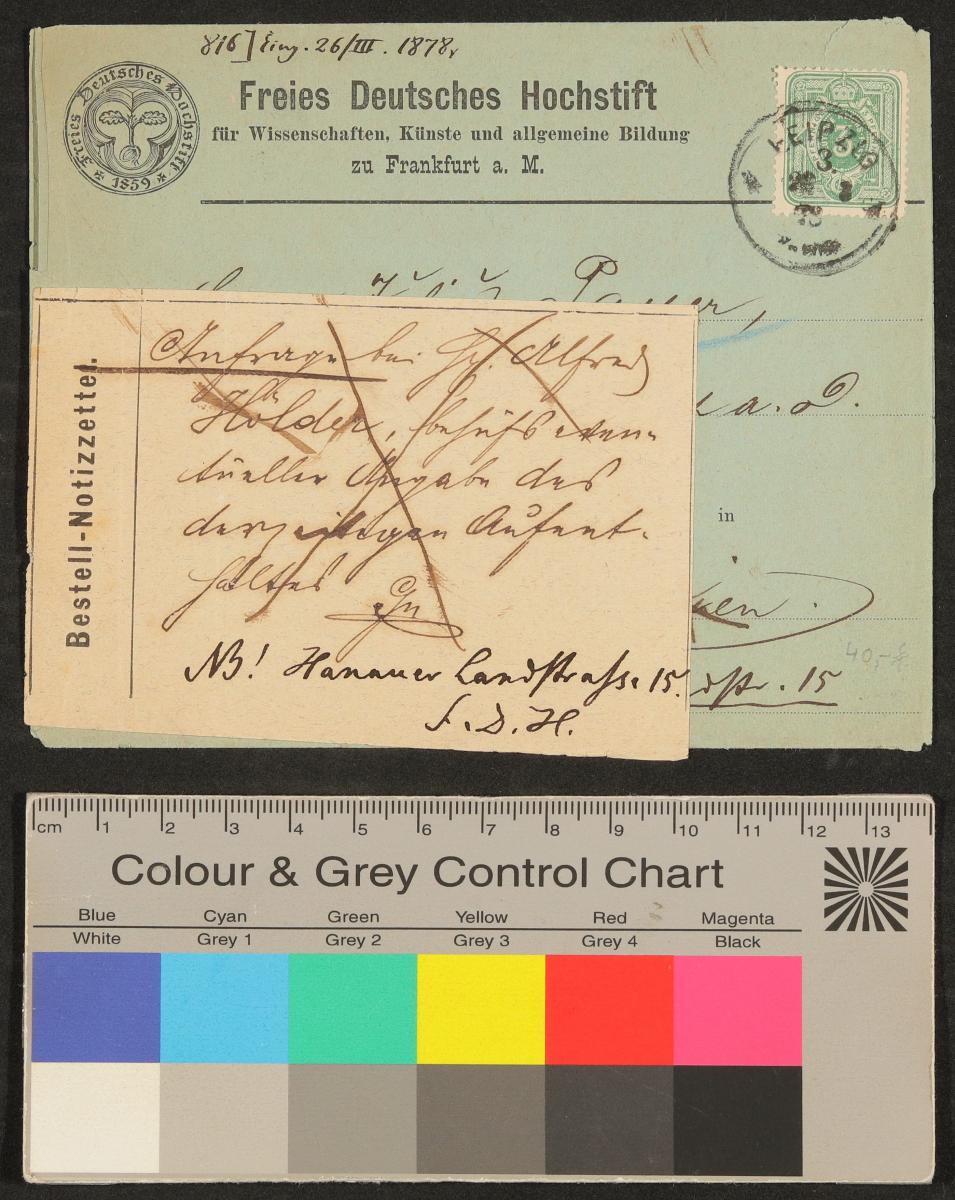 816] Eing. 26/III. 1878.
Freies Deutsches Hochstift
1859
Freies Deutsches Hochstift
für Wissenschaften, Künste und allgemeine Bildung
zu Frankfurt a. M.
LEIPZIG
3.
Payer,
a. D.
in
Wien.
dstr. 15
40,-
Bestell-Notizzettel.
Anfrage bei H. Alfred
Hölder, behufs even-
tueller Angabe des
derzeitigen Aufent-
haltes
NB! Hanauer Landstrasse 15.
F. D. H.
cm 1 2 3 4 5 6 7 8 9 10 11 12 13
Colour & Grey Control Chart
Blue Cyan Green Yellow Red Magenta
White Grey 1 Grey 2 Grey 3 Grey 4 Black